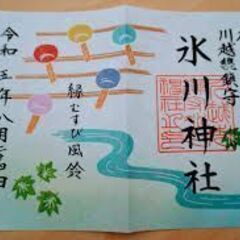 川越總鎮守
氷川神社
縁むすび風鈴
令和五年八月吉日